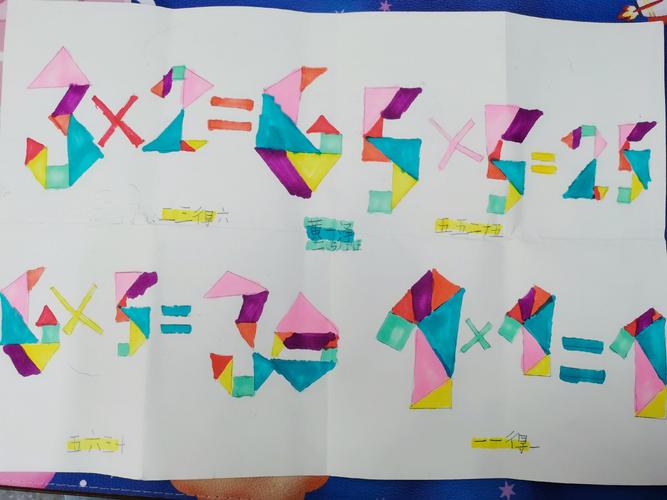 3×2=6 5×5=25
二三得六 五五二十五
6×5=30 1×1=1
五六三十 一一得一